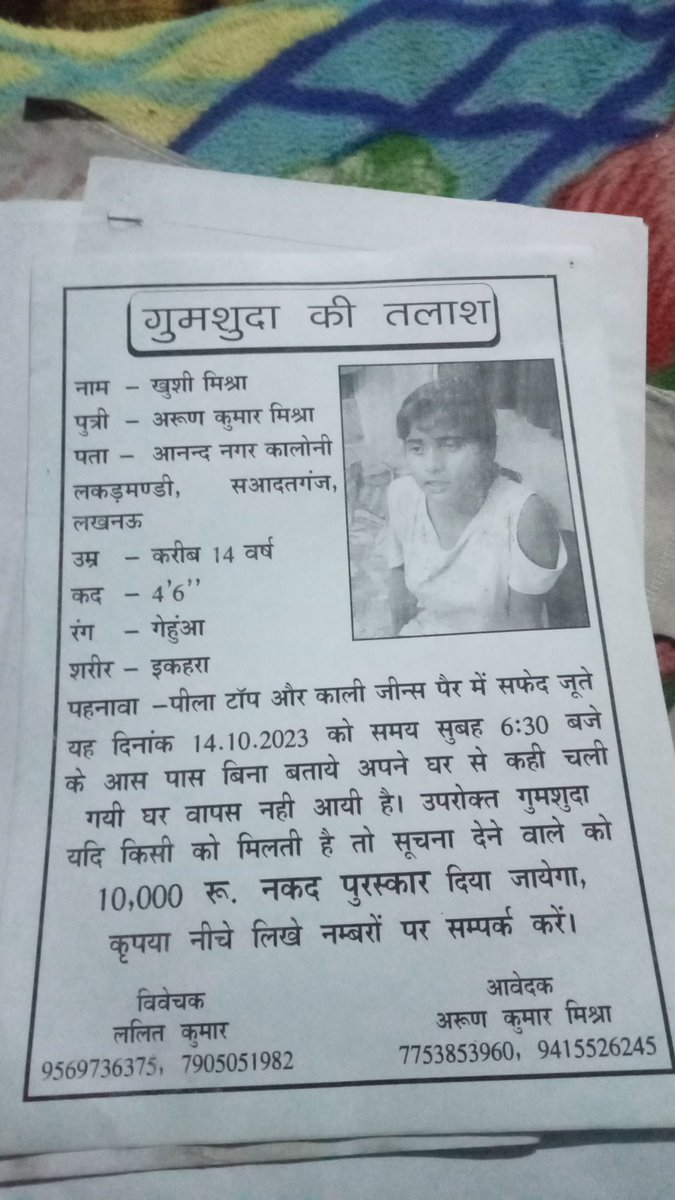 गुमशुदा की तलाश
नाम – खुशी मिश्रा
पुत्री – अरूण कुमार मिश्रा
पता – आनन्द नगर कालोनी
लकड़मण्डी, सआदतगंज,
लखनऊ
उम्र – करीब 14 वर्ष
कद – 4'6''
रंग – गेहुंआ
शरीर – इकहरा
पहनावा –पीला टॉप और काली जीन्स पैर में सफेद जूते
यह दिनांक 14.10.2023 को समय सुबह 6:30 बजे
के आस पास बिना बताये अपने घर से कही चली
गयी घर वापस नही आयी है। उपरोक्त गुमशुदा
यदि किसी को मिलती है तो सूचना देने वाले को
10,000 रू. नकद पुरस्कार दिया जायेगा,
कृपया नीचे लिखे नम्बरों पर सम्पर्क करें।
विवेचक
ललित कुमार
9569736375, 7905051982
आवेदक
अरूण कुमार मिश्रा
7753853960, 9415526245